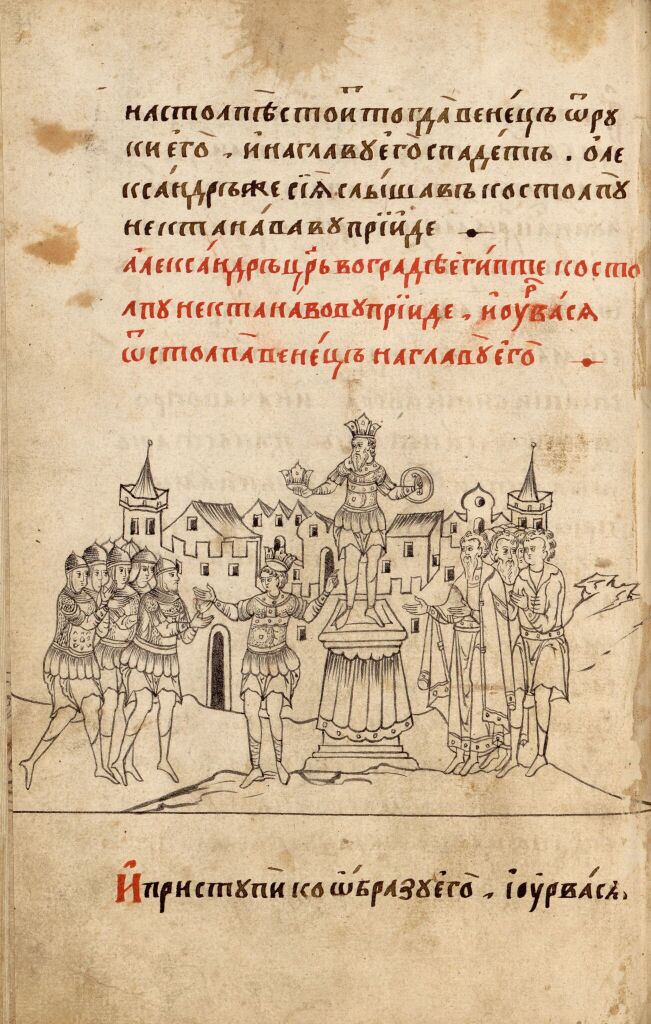 настолпѣ стои҆ тогда̀ вене́цъ ѿ рꙋ
ки є҆го̀ . и҆ наглавꙋ є҆го̀ спаде́тъ . о҆ле
ѯа́ндръ же сїѧ̀ слы́шавъ ко столпꙋ
нектана́ва вꙋ прїи́де
але́ѯа́ндръ цр҃ь во градѣ є҆гѵ́пте ко сто
лпꙋ нектана́вовꙋ прїи́де , и҆ оу҆рва́сѧ
ѿ столпа̀ вене́цъ наглавꙋ̀ є҆го̀
И҆ приступѝ ко ѡ҆́бразꙋ є҆го̀ , і оу҆рва́сѧ